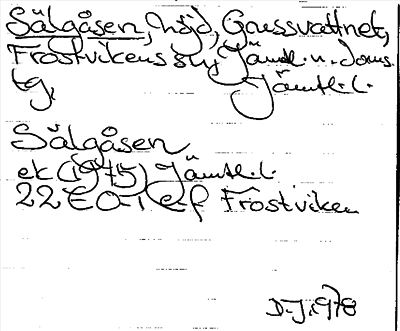 Sälgåsen, höjd, Gussvattnet,
Frostvikens sn, Jämtl. n. doms.
tg, Jämtl. l.
Sälgåsen
ek (1975) Jämtl. l.
22E 0-1 e-f Frostviken
D.J. 1978